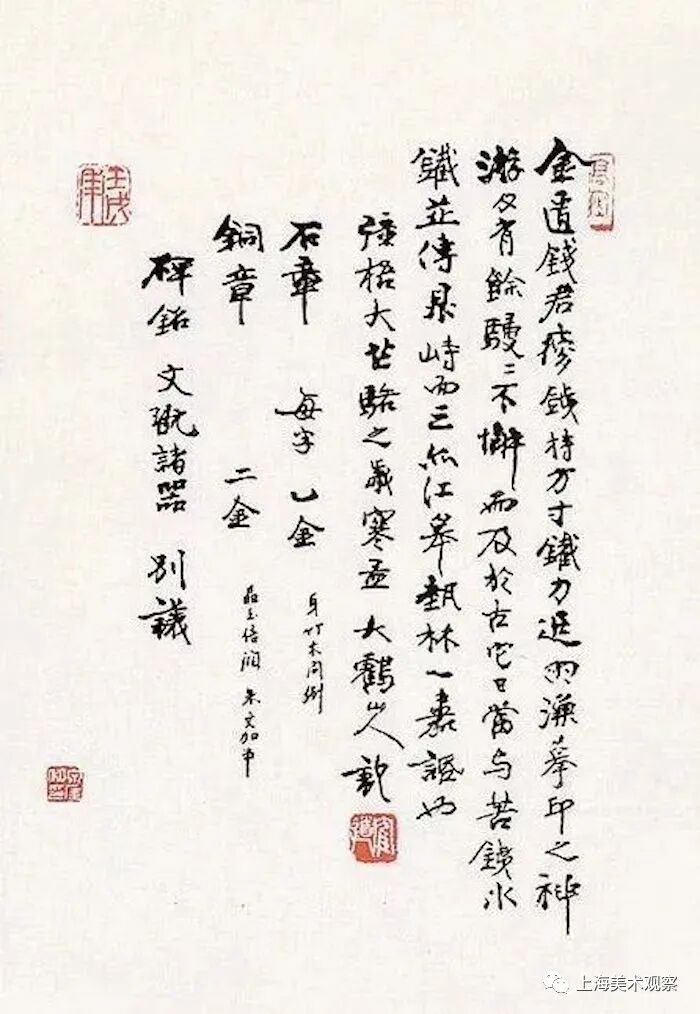 金匱錢君瘦銕持方寸鐵力追兩漢摹印之神
游刃有餘駸=不懈而及於古它日當与苦銕冰
鐵並傳鼎峙而三爲江皋藝林一嘉話也
彊梧大芒駱之歲寒孟 大鶴山人記
石章 每字 乙金 牙竹木同例
銅章 二金 晶玉倍潤 朱文加半
碑銘 文 諸器 別議
上海美术观察